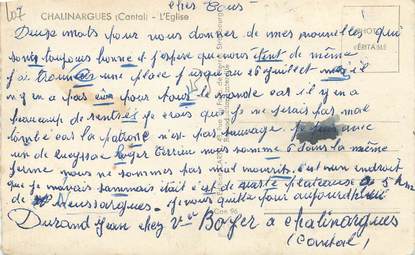 107
chers Tous
CHALINARGUES (Cantal) - L'Eglise
Deux mots pour vous donner de mes nouvelles qui
sont toujours bonne et j'espère que vous tent de même
j'ai trouvais une place jusque au 26 juillet mais il
n'y en a pas eun pour tous le monde car il y en a
beaucoup de rentrés je crois que je ne serais pas mal
tombé car la patrone n'est pas sauvage je suis avec
un de Cueyssac Roger Terrieu nous somme 6 dans la même
ferme nous ne sommes pas mal nourris c'est un endroit
que je mavais sammais était c'est de aurte plateause a 5 km
de Neussargues je vous quitte pour aujourdhui
Durand Jean chez Vve Boyer a Chalinargues
(Cantal)
PHOTO
VÉRITABLE